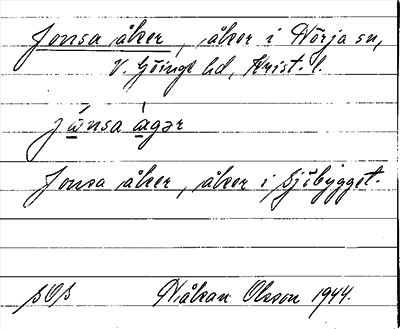 Jonsa åker, åker i Nörja sn,
V. Göinge hd, Krist. l.
jώ̲nsa ώ̲gər
Jonsa åker, åker i Sjöbygget.
SOS Håkan Olsson 1944.